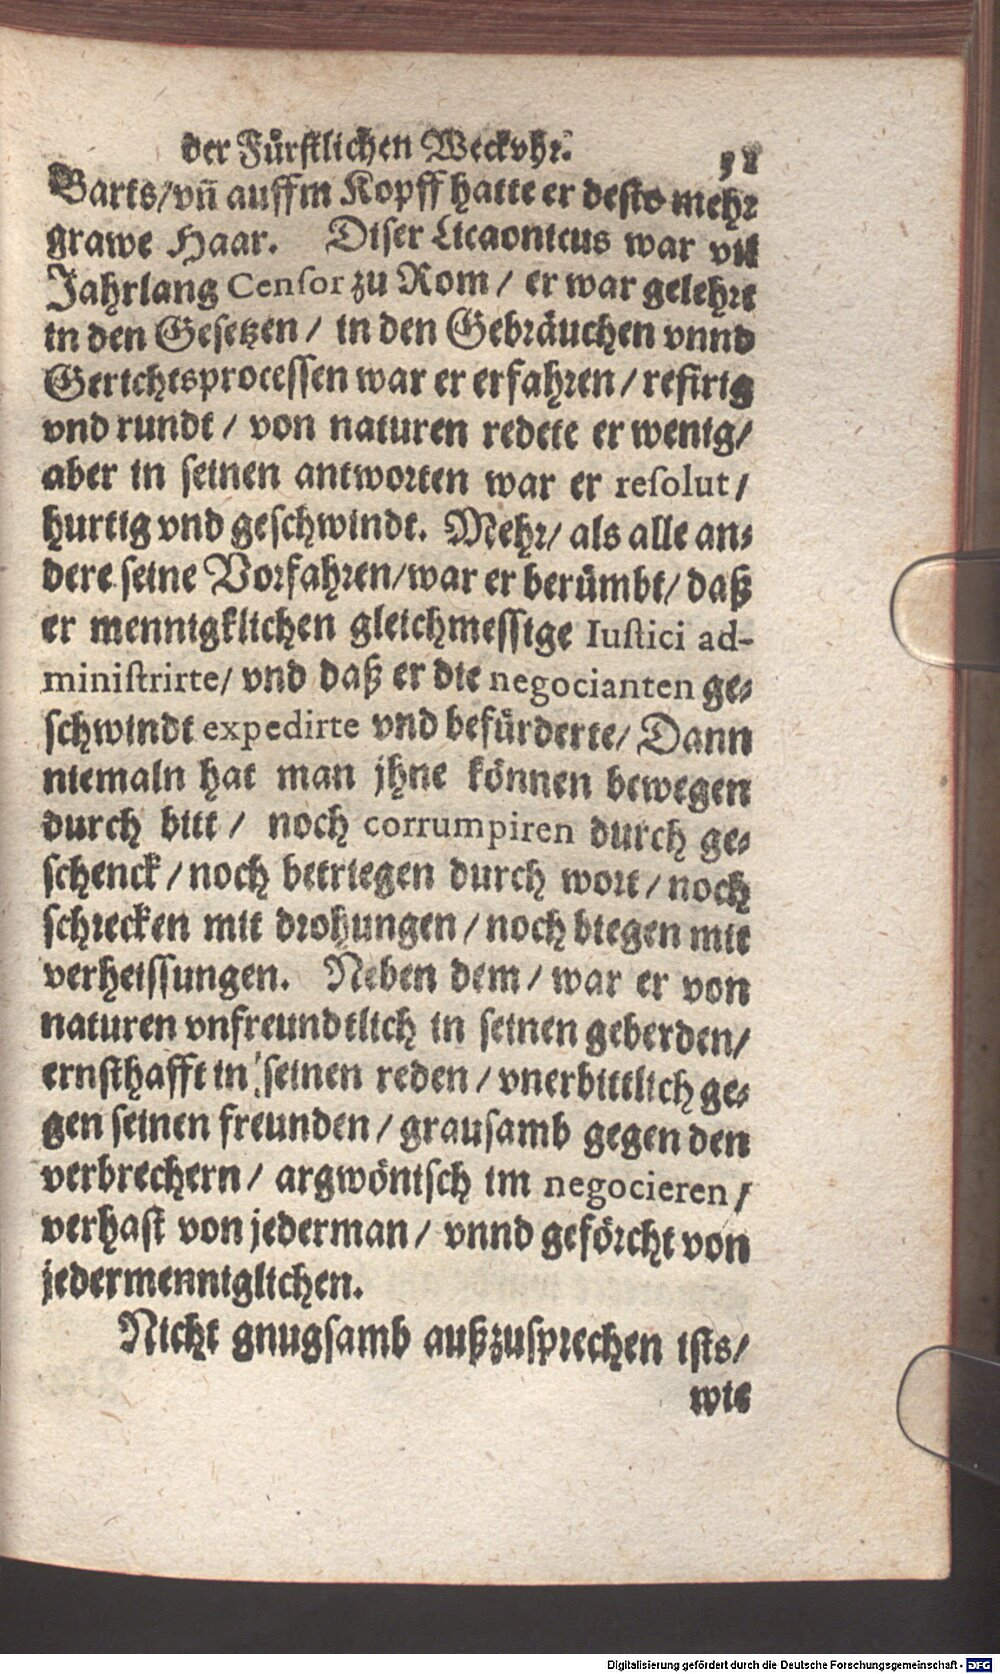 der Fürstlichen Weckvhr.
31
Barts/vñ auffm Kopff hatte er desto mehr
grawe Haar. Diser Licaonicus war vil
Jahrlang Censor zu Rom / er war gelehrt
in den Gesetzen / in den Gebräuchen vnnd
Gerichtsprocessen war er erfahren / refirig
vnd rundt / von naturen redete er wenig/
aber in seinen antworten war er resolut /
hurtig vnd geschwindt. Mehr/ als alle an-
dere seine Vorfahren/war er berümbt/ daß
er mennigklichen gleichmessige Iustici ad-
ministrirte/ vnd daß er die negocianten ge-
schwindt expedirte vnd befürderte/ Dann
niemaln hat man jhne können bewegen
durch bitt / noch corrumpiren durch ge-
schenck / noch betriegen durch wort / noch
schrecken mit drohungen / noch biegen mit
verheissungen. Neben dem / war er von
naturen vnfreundtlich in seinen geberden/
ernsthafft in seinen reden / vnerbittlich ge-
gen seinen freunden / grausamb gegen den
verbrechern / argwönisch im negocieren /
verhast von jederman / vnnd geförcht von
jedermenniglichen.
Nicht gnugsamb außzusprechen ists/
wie
Digitalisierung gefördert durch die Deutsche Forschungsgemeinschaft - DFG